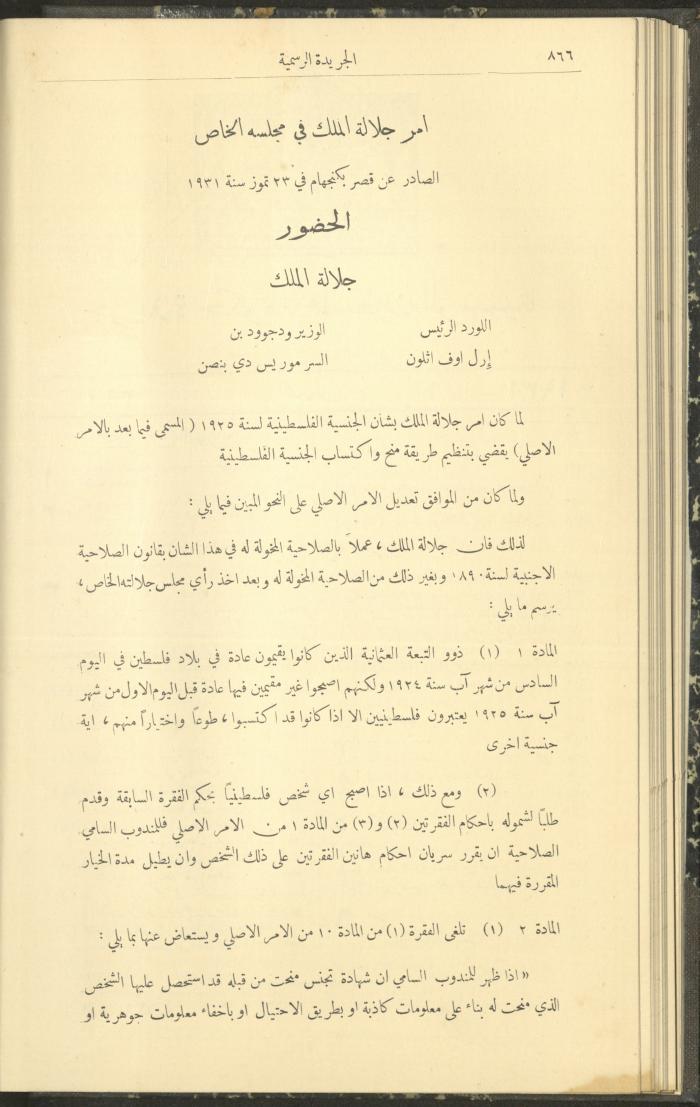 ٨٦٦
الجريدة الرسمية
امر جلالة الملك في مجلسه الخاص
الصادر عن قصر بكنجهام في ٢٣ تموز سنة ١٩٣١
الحضور
جلالة الملك
اللورد الرئيس
الوزير ودجوود بن
إرل اوف اثلون
السر موريس دي بنصن
لما كان امر جلالة الملك بشأن الجنسية الفلسطينية لسنة ١٩٢٥ ( المسمى فيما بعد بالامر
الاصلي) يقضي بتنظيم طريقة منح واكتساب الجنسية الفلسطينية
ولما كان من الموافق تعديل الامر الاصلي على النحو المبين فيما يلي :
لذلك فان جلالة الملك ، عملاً بالصلاحية المخولة له في هذا الشان بقانون الصلاحية
الاجنبية لسنة ١٨٩٠ وبغير ذلك من الصلاحية المخولة له وبعد اخذ رأي مجلس جلالته الخاص ،
يرسم ما يلي :
المادة ١ (١) ذوو التبعة العثمانية الذين كانوا يقيمون عادة في بلاد فلسطين في اليوم
السادس من شهر آب سنة ١٩٢٤ ولكنهم اصبحوا غير مقيمين فيها عادة قبل اليوم الاول من شهر
آب سنة ١٩٢٥ يعتبرون فلسطينيين الا اذا كانوا قد اكتسبوا ، طوعاً واختياراً منهم ، اية
جنسية اخرى
(٢) ومع ذلك ، اذا اصبح اي شخص فلسطينياً بحكم الفقرة السابقة وقدم
طلبًا لشموله باحكام الفقرتين (٢) و(٣) من المادة ١ من الامر الاصلي فللمندوب السامي
الصلاحية ان يقرر سريان احكام هاتين الفقرتين على ذلك الشخص وان يطيل مدة الخيار
المقررة فيهما
المادة ٢ (١) تلغى الفقرة (١) من المادة ١٠ من الامر الاصلي ويستعاض عنها بما يلي :
« اذا ظهر للمندوب السامي ان شهادة تجنس منحت من قبله قد استحصل عليها الشخص
الذي منحت له بناء على معلومات كاذبة او بطريق الاحتيال او باخفاء معلومات جوهرية او